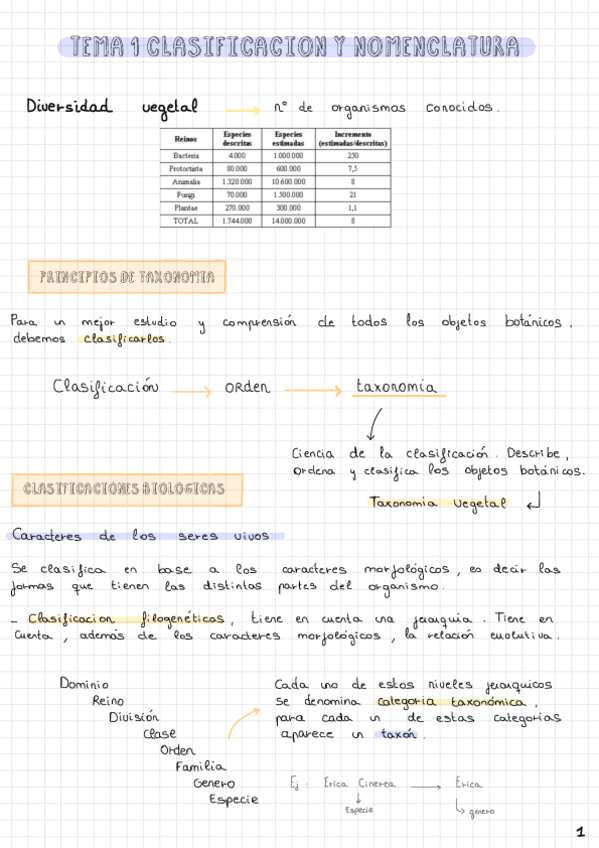 TEMA 1 CLASIFICACION Y NOMENCLATURA
Diversidad vegetal → nº de organismos conocidos.
Reinos Especies descritas Especies estimadas Incremento (estimadas/descritas)
Bacteria 4.000 1.000.000 250
Protoctista 80.000 600.000 7,5
Animalia 1.320.000 10.600.000 8
Fungi 70.000 1.500.000 21
Plantae 270.000 300.000 1,1
TOTAL 1.744.000 14.000.000 8
PRINCIPIOS DE TAXONOMIA
Para un mejor estudio y comprensión de todos los objetos botánicos,
debemos clasificarlos.
Clasificación → orden → taxonomia
Ciencia de la clasificación. Describe,
ordena y clasifica los objetos botánicos.
Taxonomia vegetal
CLASIFICACIONES BIOLOGICAS
Caracteres de los seres vivos
Se clasifica en base a los caracteres morfológicos, es decir las
formas que tienen las distintas partes del organismo.
- Clasificacion filogenéticas, tiene en cuenta una jerarquia. Tiene en
cuenta, además de los caracteres morfológicos, la relación evolutiva.
Dominio
Reino
División
Clase
Orden
Familia
Genero
Especie
Cada uno de estos niveles jerarquicos
se denomina categoria taxonómica,
para cada un de estas categorias
aparece un taxón.
Ej: Erica Cinerea → Erica
Especie
genero
1